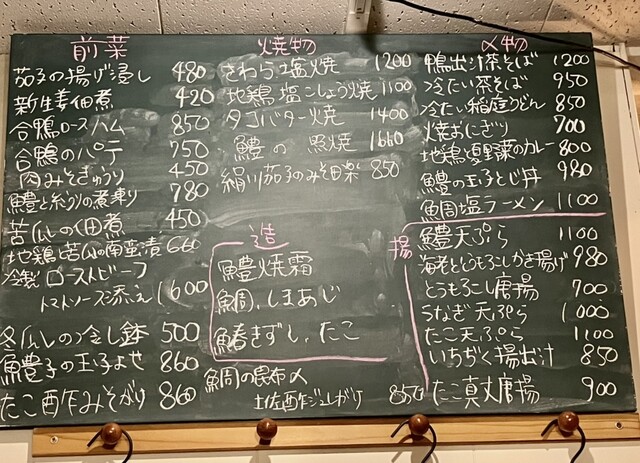 前菜
茄子の揚げ浸し 480
新生姜佃煮 420
合鴨ロースハム 850
合鴨のパテ 750
肉みそきゅうり 450
鱧と糸うりの煮凍り 780
苦瓜の佃煮 450
地鶏と苦瓜の南蛮漬 660
冷製ローストビーフ
トマトソース添え 1600
冬瓜の冷し鉢 500
鱧子の玉子よせ 860
たこ酢みそがけ 860
焼物
さわら塩焼 1200
地鶏塩こしょう焼 1100
タコバター焼 1400
鱧の照焼 1660
絹川茄子のみそ田楽 850
造
鱧焼霜
鯛、しまあじ
鰆きずし、たこ
鯛の昆布〆
土佐酢ジュレがけ 850
〆物
鴨出汁茶そば 1200
冷たい茶そば 950
冷たい稲庭うどん 850
焼おにぎり 700
地鶏夏野菜のカレー 800
鱧の玉子とじ丼 980
鯛塩ラーメン 1100
揚
鱧天ぷら 1100
海老ととうもろこしかき揚げ 980
とうもろこし唐揚 700
うなぎ天ぷら 1000
たこ天ぷら 1100
いちぢく揚出汁 850
たこ真丈唐揚 900